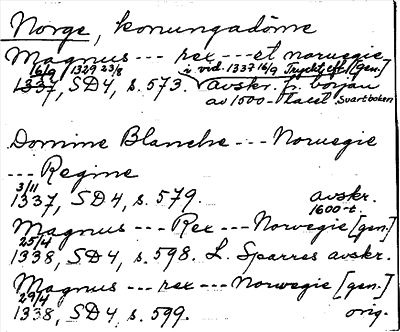 Norge, konungadöme
Magnus --- rex --- et noruegie
16/9 1329 23/8 i vid. 1337 16/9 Tryckt eft. [gen.]
1337, SD4, s. 573. avskr. fr. början
av 1500-talet Svartboken
Domine Blanche --- Noruegie
--- Regine
3/11
1337, SD4, s. 579. avskr.
1600-t.
Magnus --- Rex --- Norwegie [gen.]
25/4
1338, SD4, s. 598. L. Sparres avskr.
Magnus --- rex --- Norwegie [gen.]
29/4
1338, SD4, s. 599. orig.